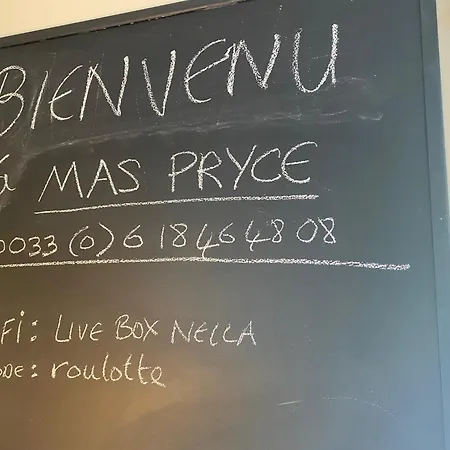 BIENVENU
à MAS PRYCE
0033 (0) 6 18 46 48 08
FI: LIVE BOX NELLA
ODE: roulotte